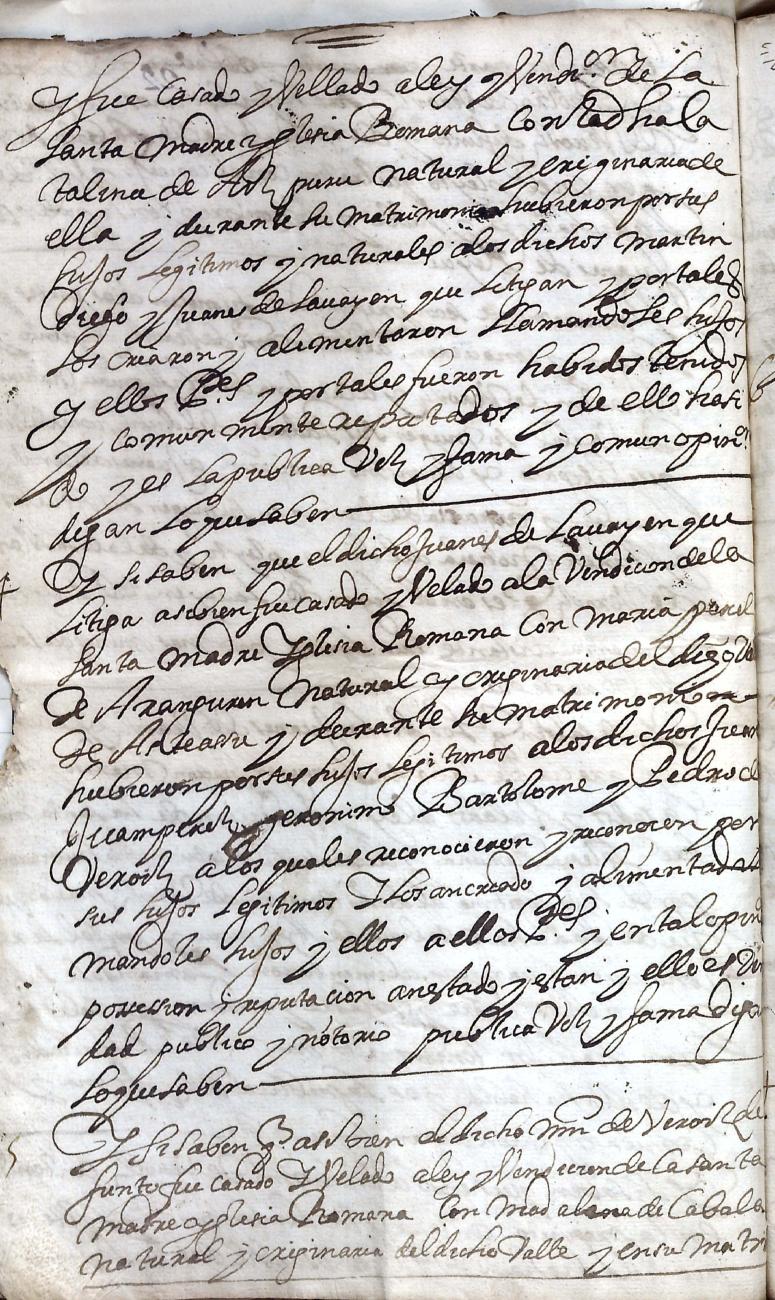 y fue casado y Vellado a ley y Vendi.on de La
santa madre yglesia Romana Con la dha Ca
talina de peru natural y originaria de
ella y durante su matrimonio hubieron por sus
hijos legitimos y naturales a los dichos martin
diego y Juanes de Lauayen que litigan y por tales
los criaron y alimentaron llamandoles hijos
y ellos P.es y por tales fueron habidos tenidos
y comunmente reputados y de ello ha si
do y es la publica Voz y fama y comun opin.on
digan lo que saben
Y si saben que el dicho Juanes de Lauayen que
litiga asibien fue casado y Velado a la Vendicion de la
santa madre Yglesia Romana Con maria perez
de Aranguren natural y originaria del dicho
de Asteasu y durante su matrimonio
hubieron por sus hijos legitimos a los dichos Juan
Juamperez geronimo Bartolome y Pedro de
Veroiz a los quales reconocieron y reconocen por
sus hijos legitimos Y los an creado y alimentado lla
mandoles hijos y ellos a ellos P.es y en tal opin
posession y reputacion an estado y estan y ello es Ver
dad publico y notorio publica Voz y fama digan
lo que saben
Y si saben q.e asibien el dicho mrn de Veroiz de
funto fue casado Y Velado a ley y Vendicion de la santa
madre yglesia Romana Con madalena de Caballa
natural y originaria del dicho Valle y en su matri